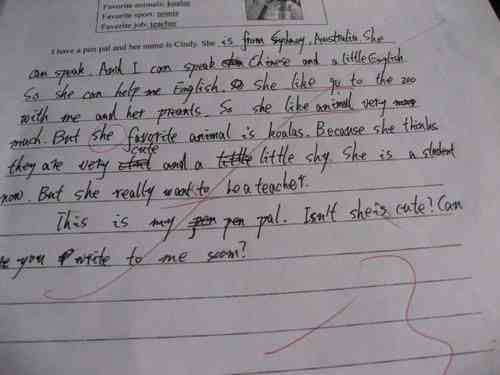 Favorite animal: koalas
Favorite sport: tennis
Favorite job: teacher
I have a pen pal and her name is Cindy. She is from Sydney, Australia. She
can speak. And I can speak Chinese and a little English.
So she can help me English. So she like go to the zoo
with me and her prents. So she like animal very
much. But she favorite animal is koalas. Because she thinks
they are very cute and a little shy. She is a student
now. But she really want to be a teacher.
This is my pen pal. Isn't she is cute? Can
you write to me soom?